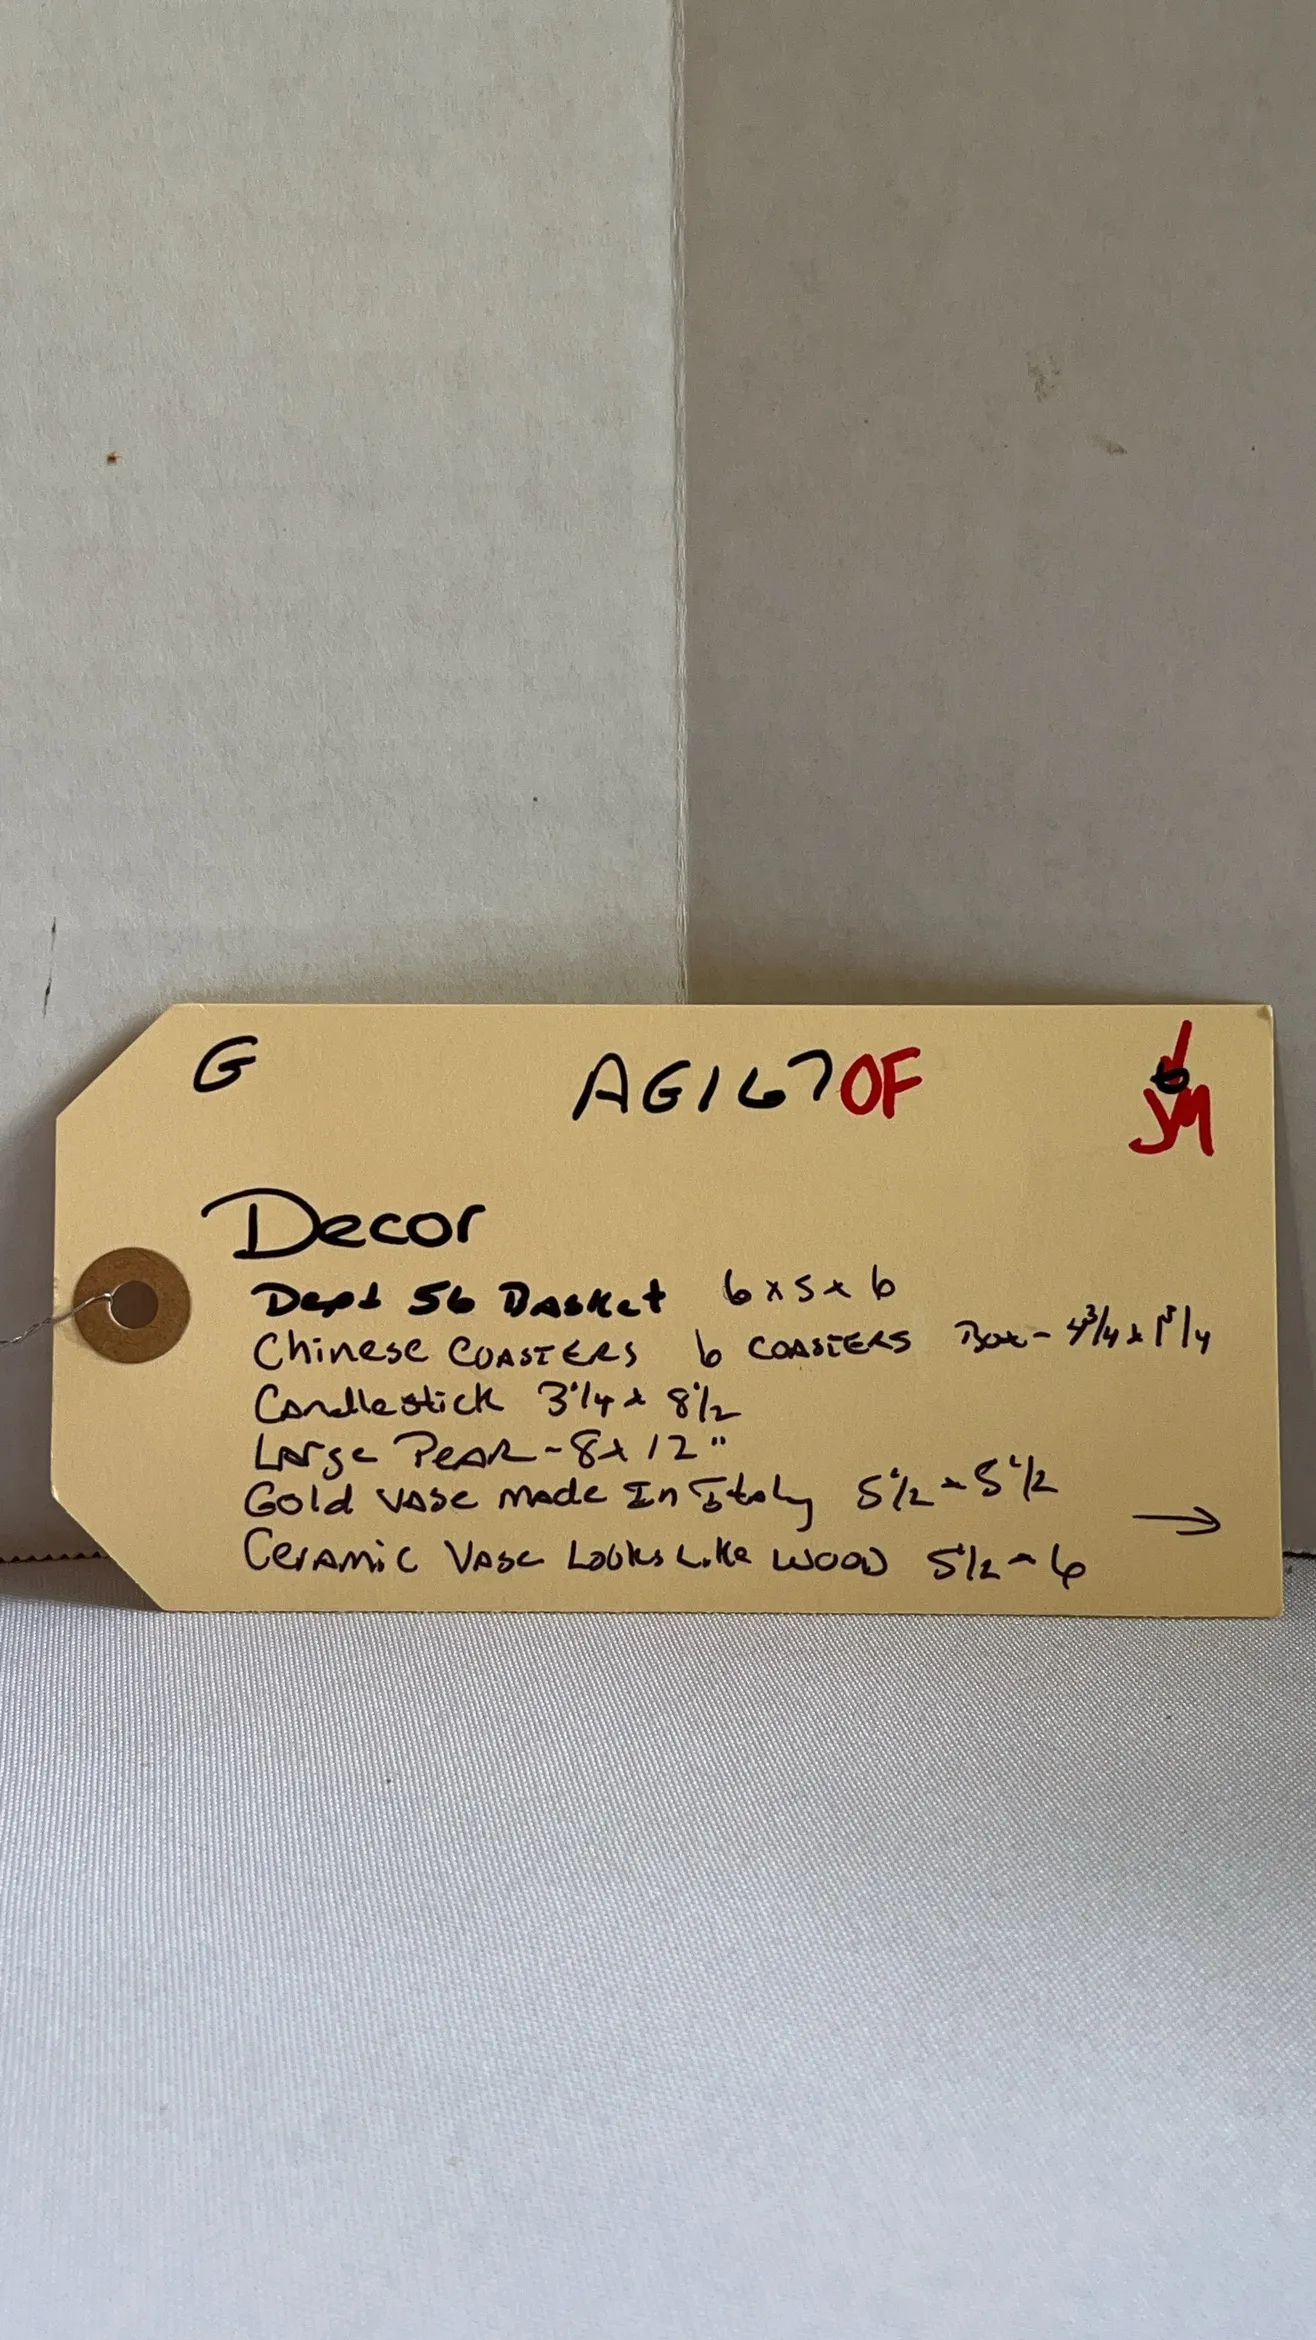 G AG167OF JM
Decor
Dept 56 Basket 6 x 5 x 6
Chinese Coasters 6 Coasters Box - 4 3/4 x 1 3/4
Candlestick 3 1/4 x 8 1/2
Large Pear - 8 x 12"
Gold Vase Made In Italy 5 1/2 x 5 1/2
Ceramic Vase Looks Like Wood 5 1/2 - 6